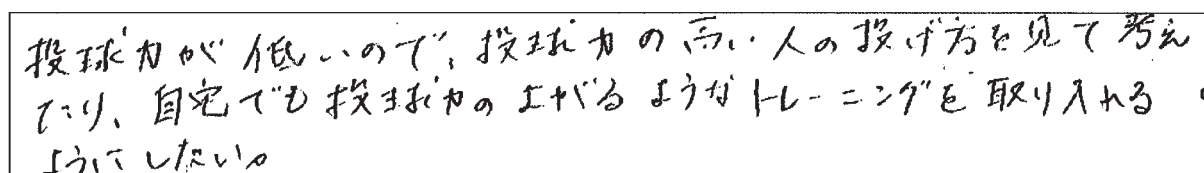 投球力が低いので、投球力の高い人の投げ方を見て考え
たり、自宅でも投球力の上がるようなトレーニングを取り入れる
ようにしたい。